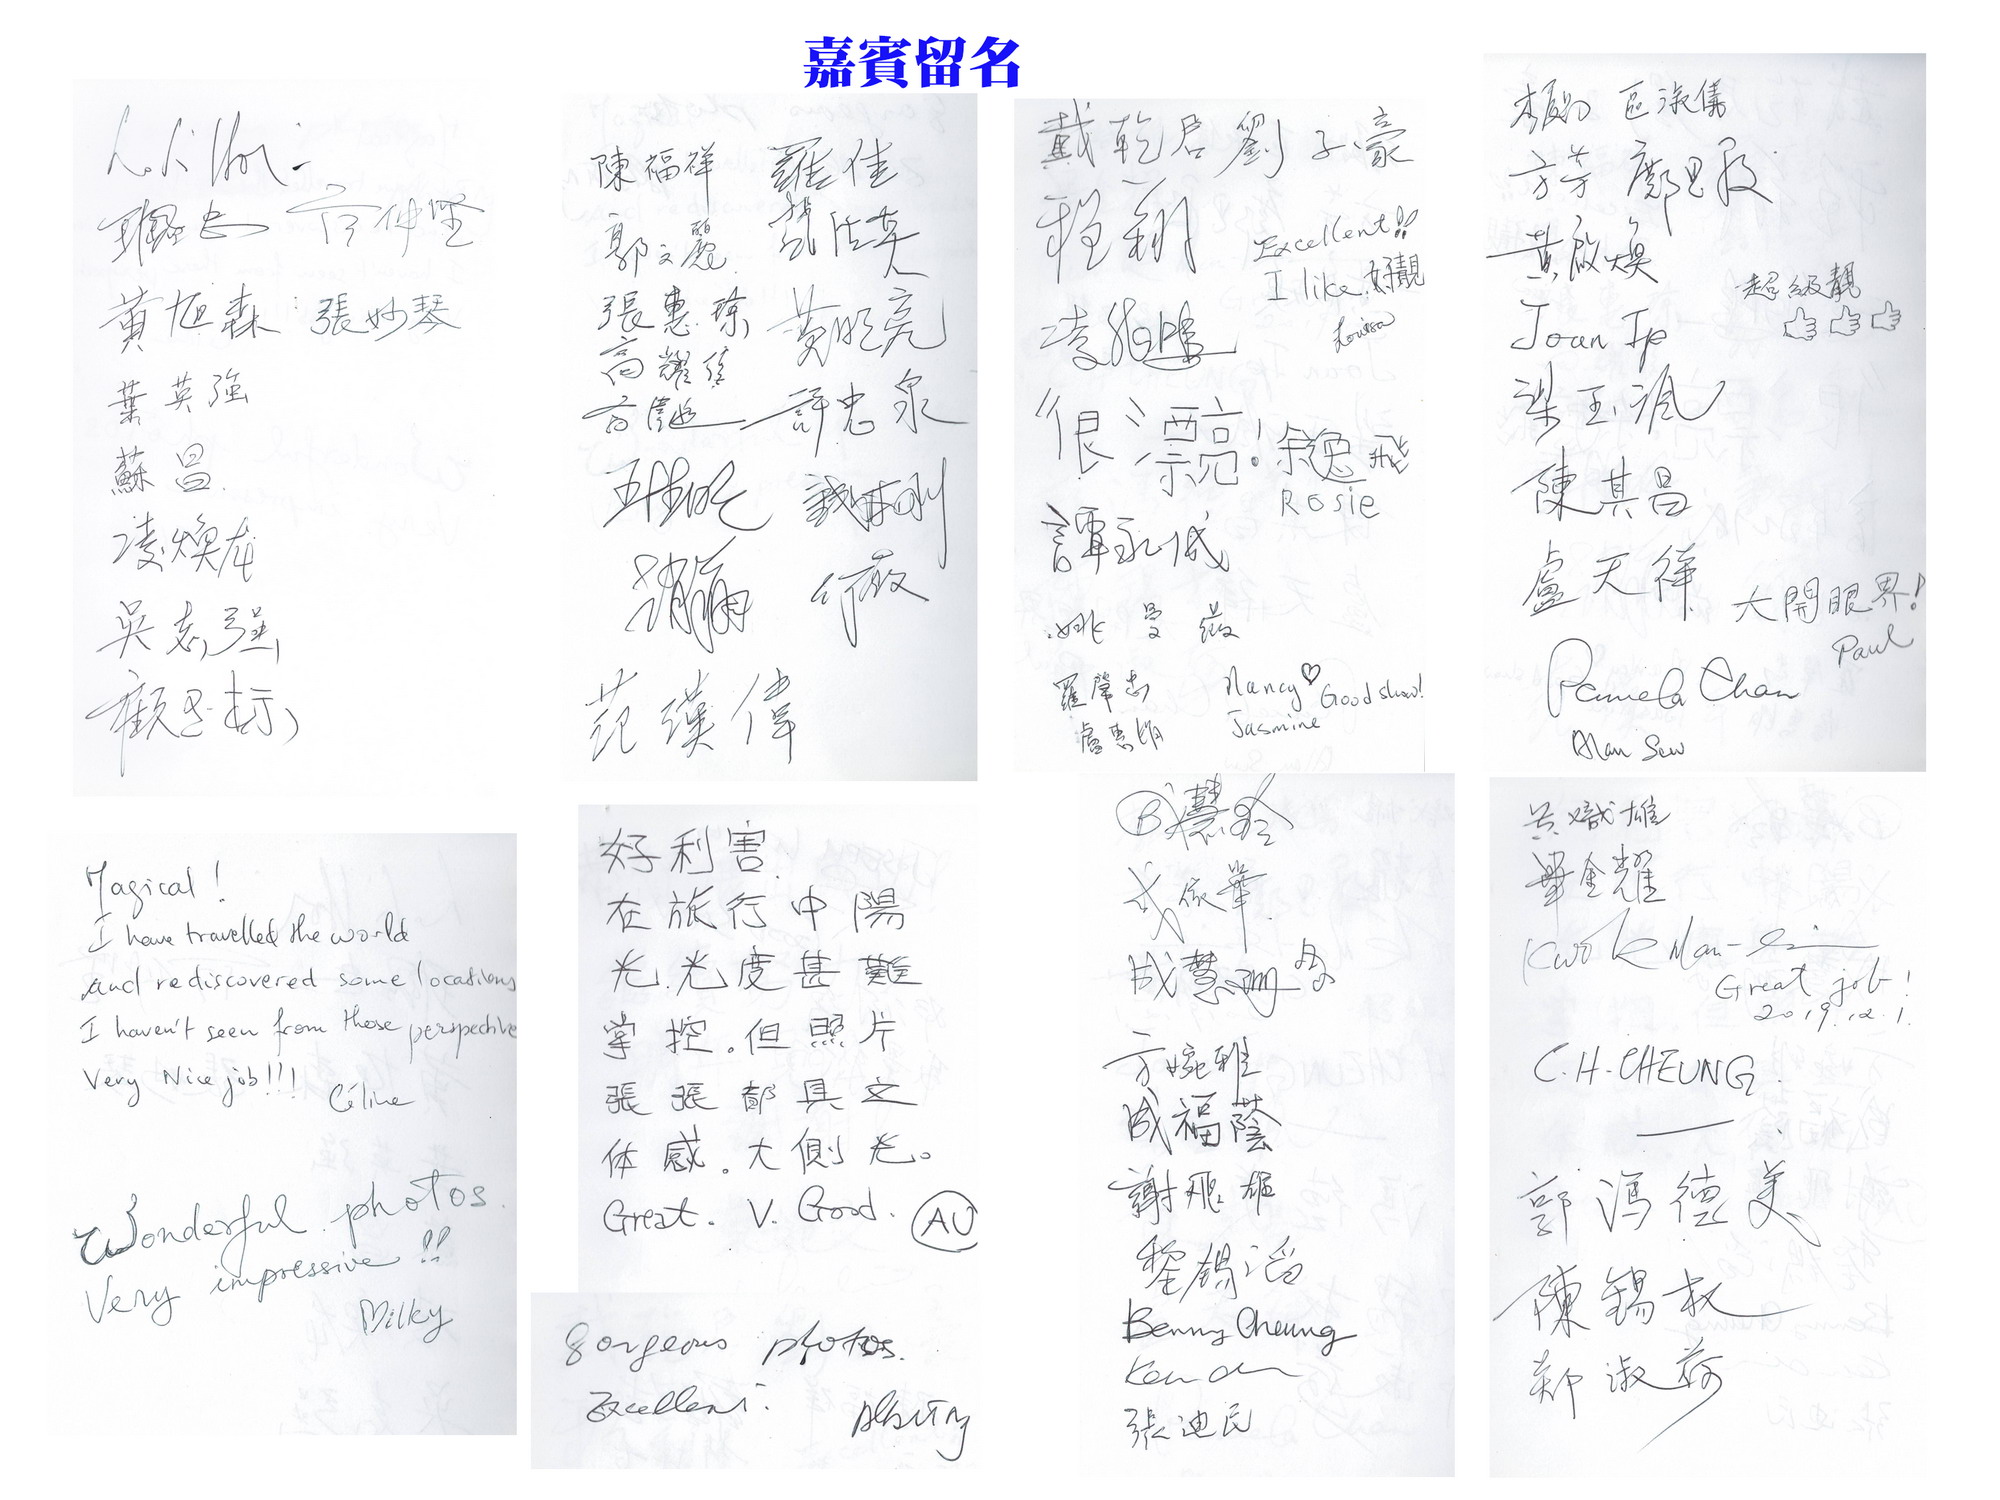 嘉賓留名
張妙琴
葉英強
蘇昌
凌煥
吳志強
陳福祥 羅佳
郭文麗
張惠
高耀
黃明亮
許忠泉
范漢偉
戴乾君 劉子豪
程翔
Excellent!!
I like. 好靚
Louisa
很漂亮! 余逸飛
Rosie
譚永成
姚曼薇
羅肇志
盧惠娟
Nancy♡ Good show!
Jasmine
區淑儀
方芳
黃啟煥
超級靚
👍👍👍
Joan Ip
梁玉
陳其昌
盧天祥
大開眼界!
Paul
Pamela Chan
Alan Sew
Magical!
I have travelled the world
and rediscovered some locations
I haven't seen from those perspective
Very Nice job!!!
Céline
Wonderful photos.
Very impressive!!
Milky
好利害.
在旅行中陽
光.光度甚難
掌控。但照片
張張都具立
体感。大側光。
Great. V. Good. AU
gorgeous photos.
Excellent.
成慧玲
成依華
成慧珊
方婉雅
成福蔭
謝飛雄
黎錫滔
Benny Cheung
張迪民
黃熾雄
畢金耀
Kwok Man-
Great job!
2019.12.1.
C.H.CHEUNG.
郭馮德美
陳錫
鄭淑